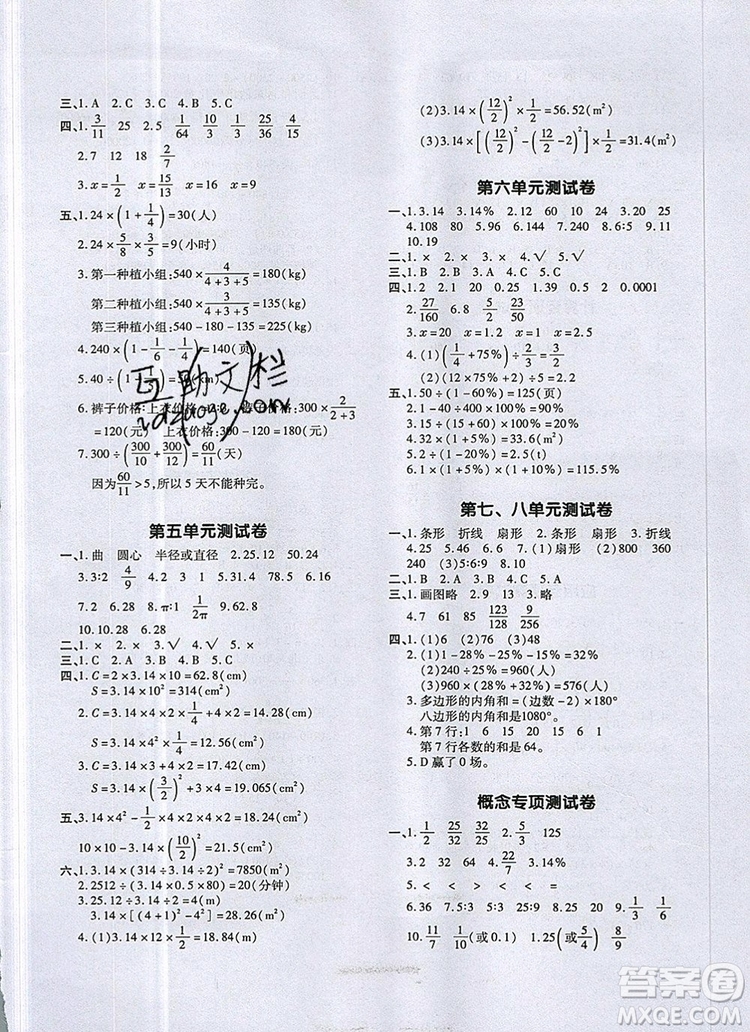 三、1. A 2. C 3. C 4. B 5. C
四、1. 3/11 25 2.5 1/64 3/10 10/3 6/25 4/15
2. 7 12 2/7
3. x=1/2 x=15 x=16 x=9
五、1. 24×(1+1/4)=30(人)
2. 24×5/8×3/5=9(小时)
3. 第一种植小组:540×4/(4+3+5)=180(kg)
第二种植小组:540×3/(4+3+5)=135(kg)
第三种植小组:540-180-135=225(kg)
4. 240×(1-1/6-1/4)=140(页)
5. 40÷(1-
6. 裤子价格:上衣价格=2:3 裤子价格:300×2/(2+3)
=120(元) 上衣价格:300-120=180(元)
7. 300÷(300/10+300/12)=60/11(天)
因为60/11>5,所以5天不能种完。
互助文栏
第五单元测试卷
一、1. 曲 圆心 半径或直径 2. 25.12 50.24
3. 3:2 4/9 4. 2 3 1 5. 3.14 6. 3.14
7. 2 6.28 8. π:1 1/2π 9. 62.8
10. 10.28 6.28
二、1. × 2. × 3. √ 4. √ 5. ×
三、1. C 2. A 3. B 4. C 5. C
四、1. C=2×3.14×10=62.8(cm)
S=3.14×10²=314(cm²)
2. C=3.14×4×2×1/4+4×2=14.28(cm)
S=3.14×4²×1/4=12.56(cm²)
3. C=3.14×3+4×2=17.42(cm)
S=3.14×(3/2)²+3×4=19.065(cm²)
五、3.14×4²-1/2×4×4×2=34.24(cm²)
10×10-3.14×(10/2)²=21.5(cm²)
六、1. 3.14×(314÷3.14÷2)²=7850(m²)
2. 2512÷(3.14×2×20)=20(分钟)
3. 25.12÷3.14÷2=4(m)
3.14×[(4+1)²-4²]=28.26(m²)
4. (1)3.14×12×1/2=18.84(m)
(2)3.14×(12/2)²×1/2=56.52(m²)
(3)3.14×[(12/2)²-(12/2-2)²]×1/2=31.4(m²)
第六单元测试卷
一、1. 3.14 3.14% 2. 12 60 3. 20 25
4. 108 80 5. 96 6. 144 7. 200 8. > 9. 110
10. 19
二、1. × 2. × 3. × 4. √ 5. √
三、1. C 2. C 3. B 4. A 5. B
四、1. 2 1.35 1.29 0.5 2 0.0001
2. 27/160 6.8 5/32 23/50
3. x=20 x=1.2 x=1 x=25
4. (1)(1/4+75%)÷3/5=5/3
(2)(1/2+75%)÷1/3=15/4
五、1. 50÷(1-60%)=125(页)
2. 1-80÷400=80%
3. 400÷(1-60%)=1000(套)
4. 32×(1+5%)=33.6(m²)
5. 2÷(1-20%)=2.5(t)
6. 1×(1+5%)×(1+10%)=115.5%
第七、八单元测试卷
一、1. 条形 折线 扇形 2. 条形 3. 折线
4. 25 5. 96 6. 12 7. (1)扇形 (2)800 360
240 (3)62.5 8. 10
二、1. B 2. C 3. A 4. C 5. C
三、1. 画图略 2. 9 13 3. 略
4. 7 61 85 123/128 9/256
四、1. (1)6 (2)76 (3)48
2. (1)1-28%-25%-15%=32%
(2)240÷25%=960(人)
(3)960×(28%+32%)=576(人)
3. 多边形的内角和=(边数-2)×180°
八边形的内角和是1080°。
4. 第7行:1 6 15 20 15 6 1
第7行各数的和是64。
5. D赢了0场。
概念专项测试卷
一、1. 1/2 25/32 32/25 2. 5/3 125
3. 2 32 64 4. 22/7 3.14% 3.14
5. < < > <
6. 36 7. 5:3 5:3 25:9 8. 25 20 9. 1/3 1/3
10. 11/7 1/10(或0.1) 1.25(或5/4) 8/9
答案圈
MXQE.COM